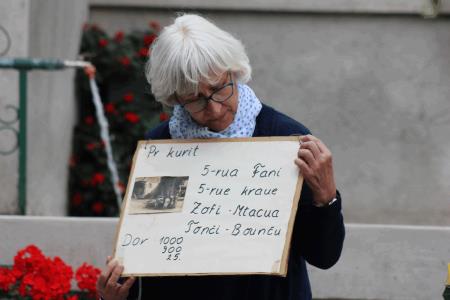 Pr kurit
5-rua Fani
5-rue kraue
Zofi - Mtacua
Tonći - Bounću
Dor 1000
900
25.